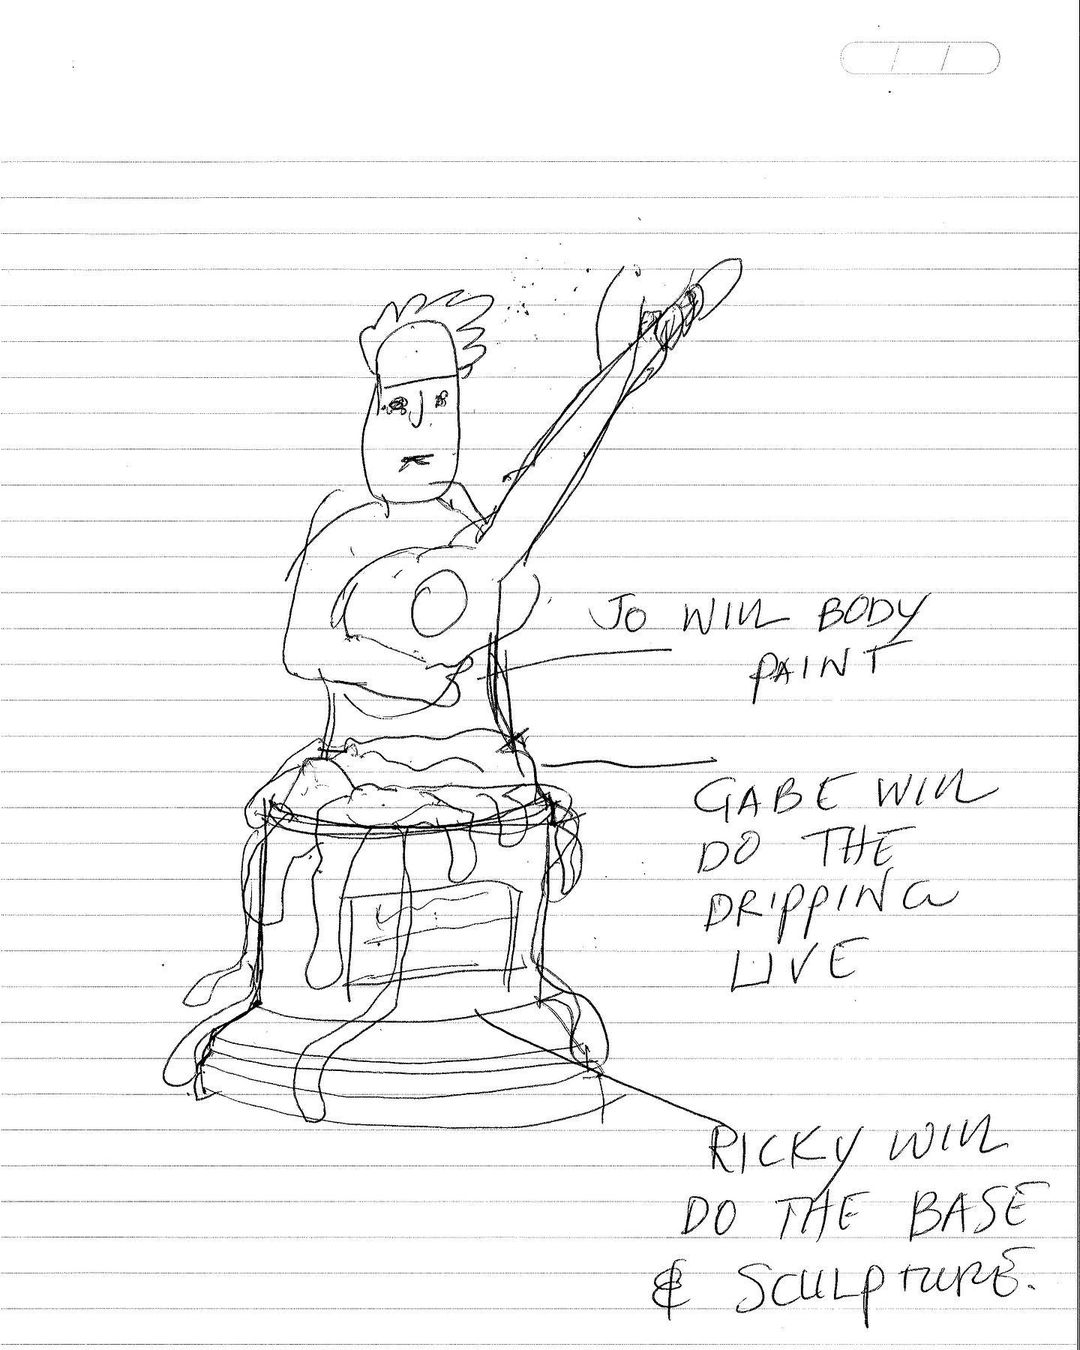 JO WILL BODY
PAINT
GABE WILL
DO THE
DRIPPING
LIVE
RICKY WILL
DO THE BASE
& SCULPTURE.